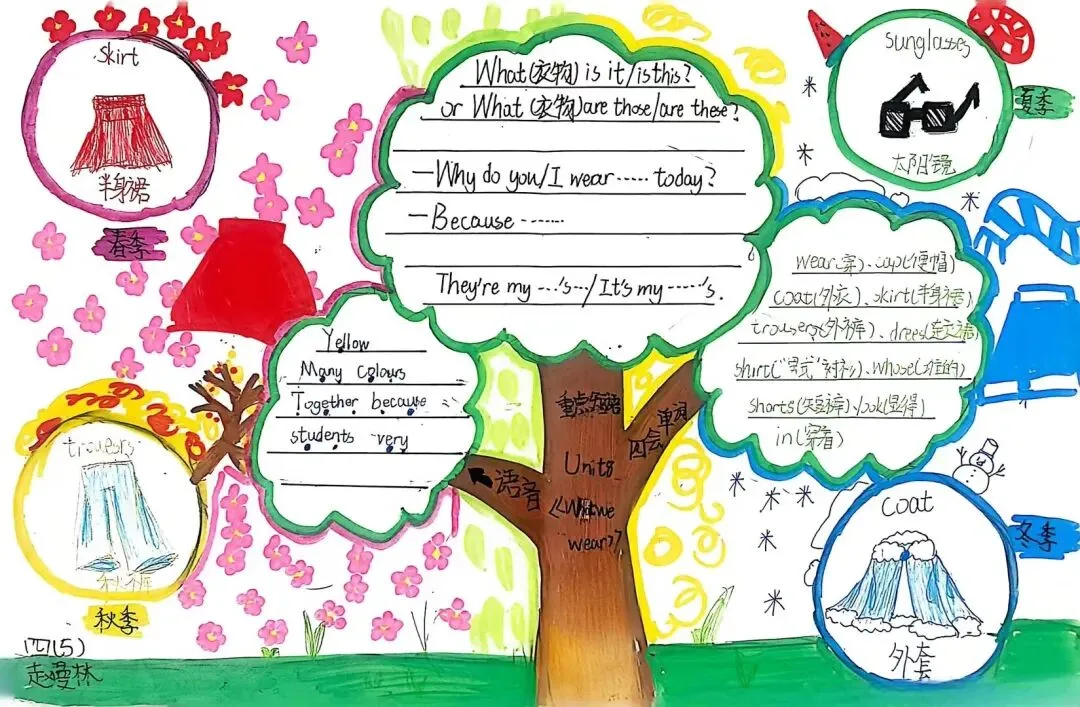 skirt
半身裙
春季
What(衣物) is it/is this?
or What (衣物)are those/are these?
—Why do you/I wear ······ today?
—Because -------
They're my ---'s--/It's my -----'s.
sunglasses
太阳镜
夏季
wear(穿)、cap(便帽)
coat(外衣)、skirt(半身裙)
trousers(外裤)、dress(连衣裙)
shirt("男式"衬衫)、whose(谁的)
shorts(短裤)、look(显得)
in(穿着)
Yellow
Many colours
Together because
students very
重点短语
四会
单词
语音
Unit5
《What we
wear》
trousers
秋裤
秋季
coat
外套
冬季
四(5)